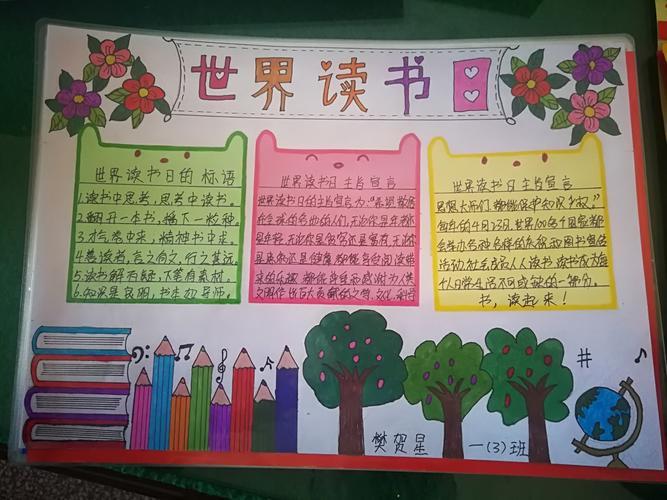 世界读书日
世界读书日的标语
1.读书中思考,思考中读书。
2.翻开一本书,播下一粒种。
3.才气卷中来,精神书中走。
4.慧读者,言之何文,行之其远
5.读书解百疑,下笔有素材。
6.知识是良朋,书本如导师。
世界读书日主旨宣言
世界读书日主旨宣言为:“希望散居
在全球的各地的人们,无论你是年老
是年轻,无论你是贫穷还是富有,无论
是患病还是健康,都能享受阅读带
来的乐趣,都能尊重和感谢为人类
文明作出巨大贡献的文学、文化、科学
世界读书日主旨宣言
思想大师们,都能保护知识产权。”
每年的4月23日,世界100多个国家都
会举办各种各样的庆祝和图书宣传
活动
社会成员人人读书,读书成为每
个人日常生活不可或缺的一部分。
书,读起来!
樊贺星 一(3)班